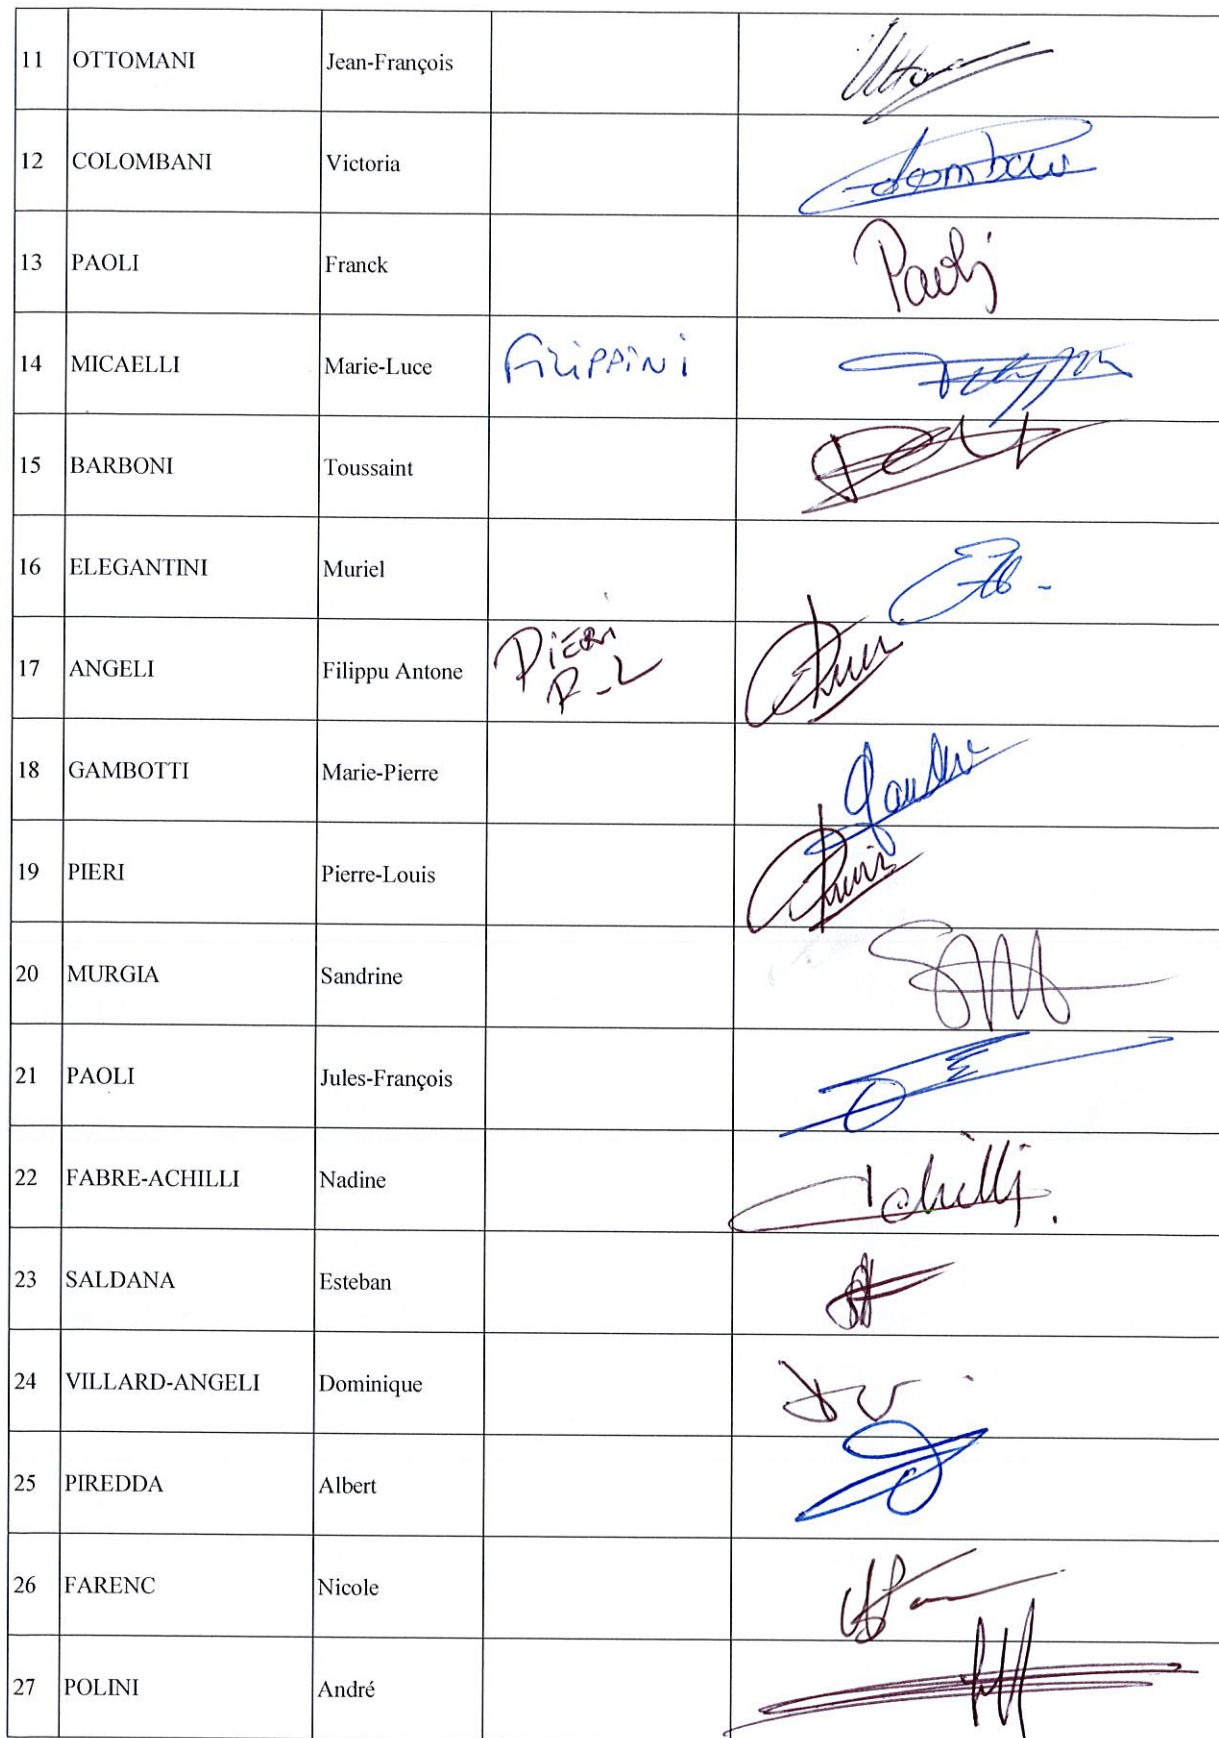 11 OTTOMANI Jean-François
12 COLOMBANI Victoria
13 PAOLI Franck Paoli
14 MICAELLI Marie-Luce FILIPPINI
15 BARBONI Toussaint
16 ELEGANTINI Muriel
17 ANGELI Filippu Antone PIERI
P-L
18 GAMBOTTI Marie-Pierre
19 PIERI Pierre-Louis
20 MURGIA Sandrine
21 PAOLI Jules-François
22 FABRE-ACHILLI Nadine Achilli
23 SALDANA Esteban
24 VILLARD-ANGELI Dominique
25 PIREDDA Albert
26 FARENC Nicole
27 POLINI André